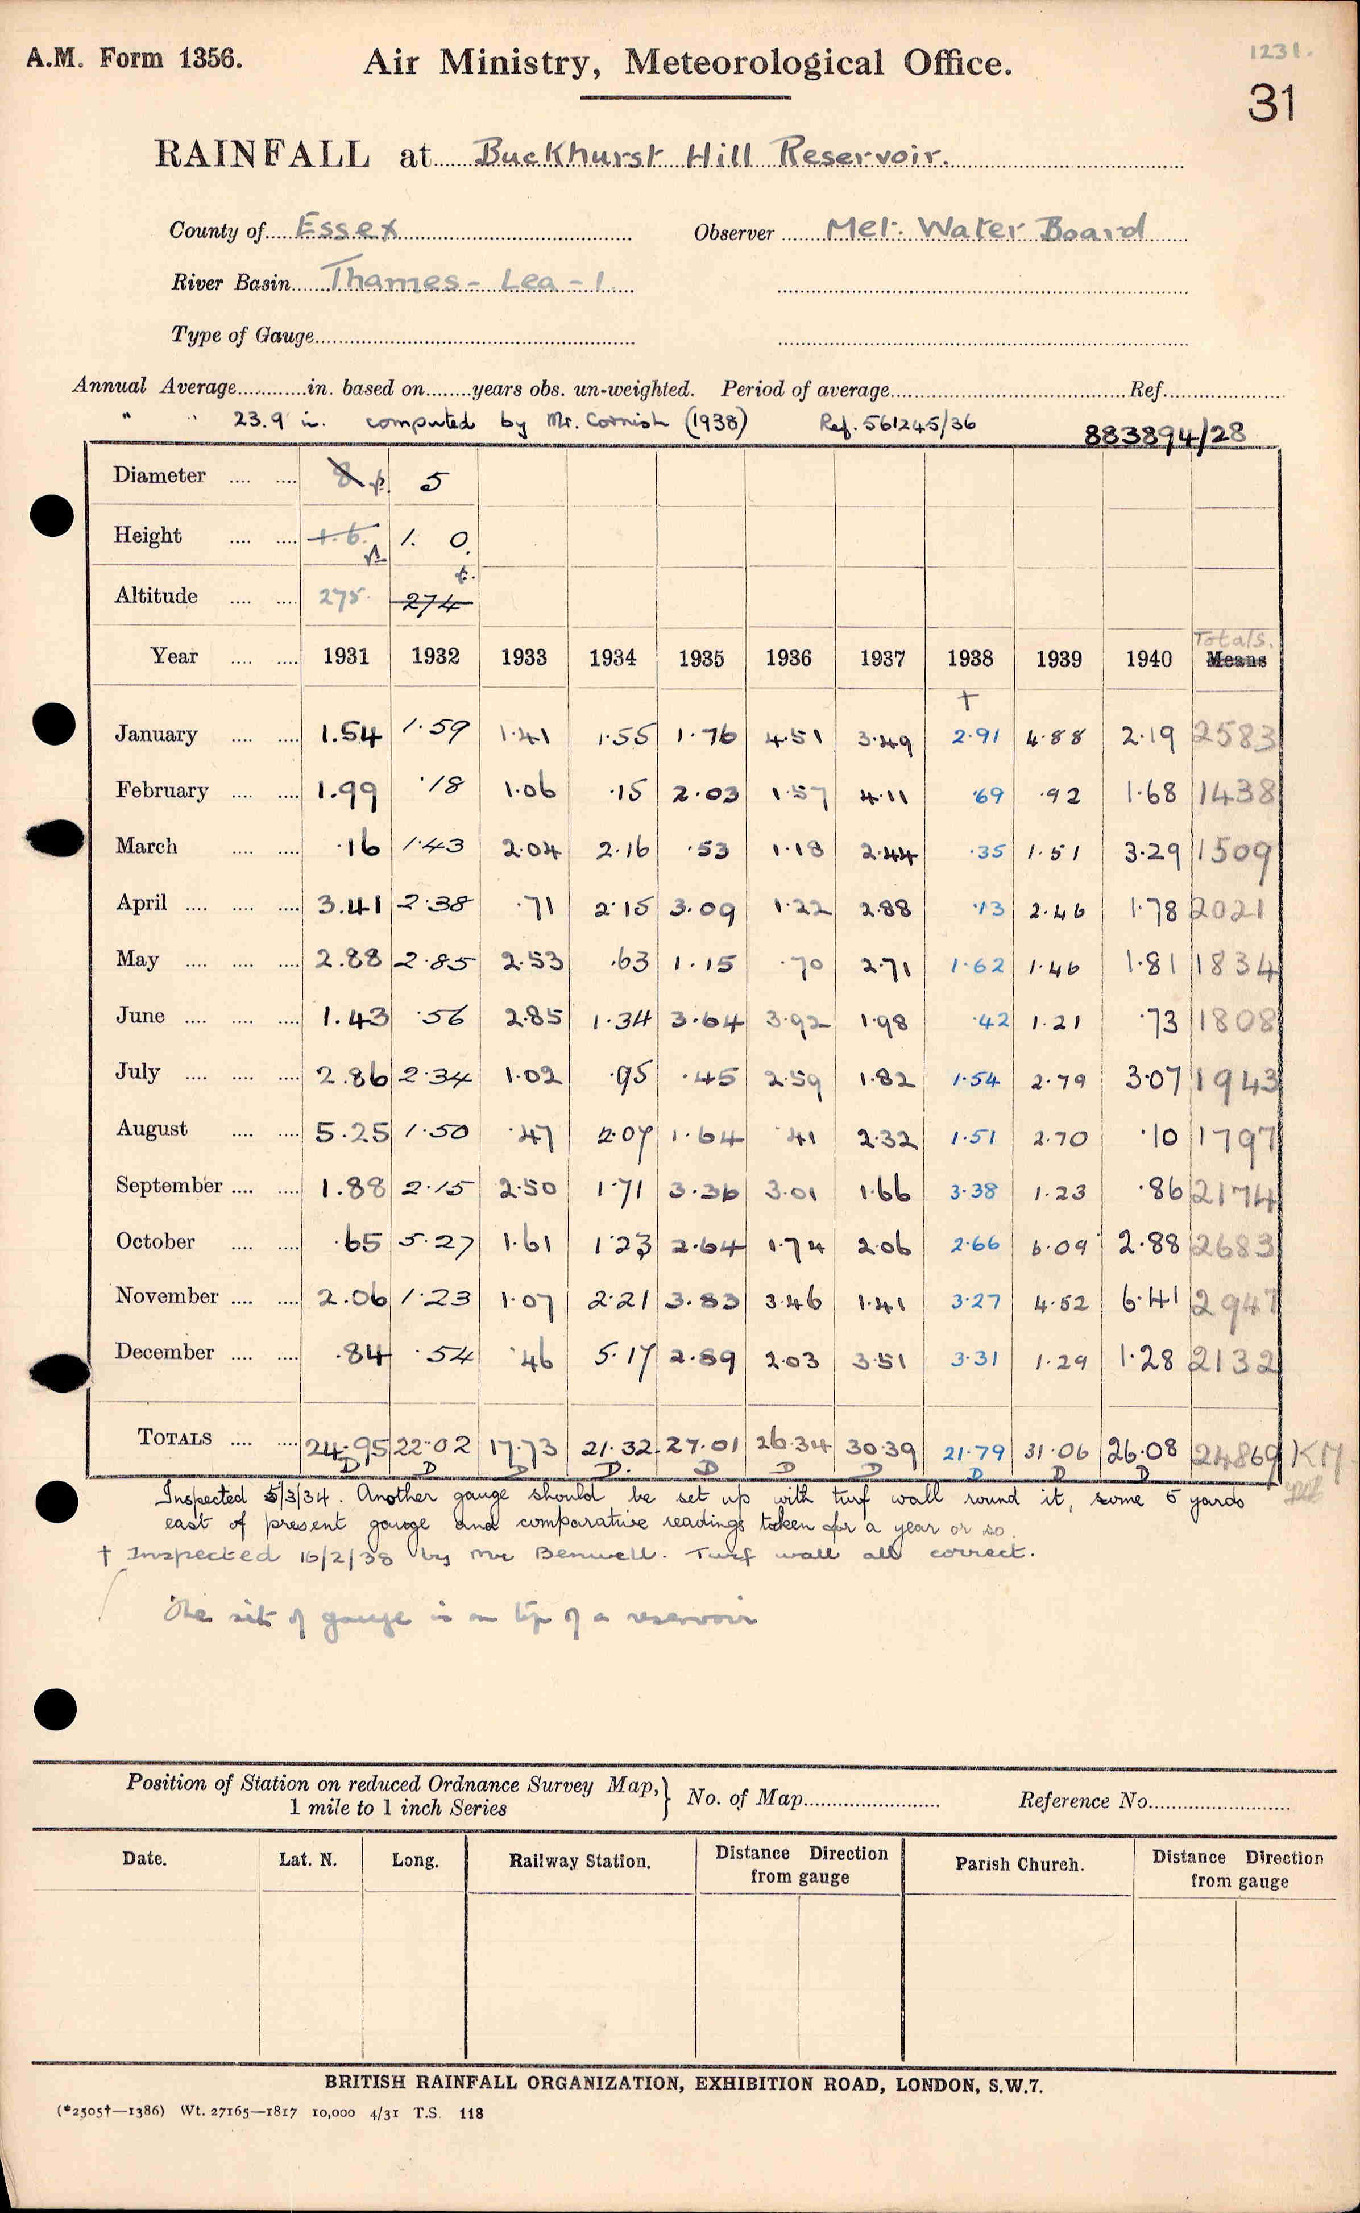 1231.
A.M. Form 1356. Air Ministry, Meteorological Office.
31
RAINFALL at Buckhurst Hill Reservoir.
County of Essex Observer Met. Water Board
River Basin Thames - Lea - 1
Type of Gauge
Annual Average in. based on years obs. un-weighted. Period of average Ref.
" " 23.9 in. computed by Mr. Cornish (1938) Ref. 561245/36 883894/28
Diameter 8 5
Height 1.6 1. 0
Altitude 275 274
Totals.
Year 1931 1932 1933 1934 1935 1936 1937 1938 1939 1940 Means
†
January 1.54 1.59 1.41 1.55 1.76 4.51 3.49 2.91 4.88 2.19 2583
February 1.99 .18 1.06 .15 2.03 1.57 4.11 .69 .92 1.68 1438
March .16 1.43 2.04 2.16 .53 1.18 2.44 .35 1.51 3.29 1509
April 3.41 2.38 .71 2.15 3.09 1.22 2.88 .13 2.46 1.78 2021
May 2.88 2.85 2.53 .63 1.15 .70 2.71 1.62 1.46 1.81 1834
June 1.43 .56 2.85 1.34 3.64 3.92 1.98 .42 1.21 .73 1808
July 2.86 2.34 1.02 .95 .45 2.59 1.82 1.54 2.79 3.07 1943
August 5.25 1.50 .47 2.07 1.64 .41 2.32 1.51 2.70 .10 1797
September 1.88 2.15 2.50 1.71 3.36 3.01 1.66 3.38 1.23 .86 2174
October .65 5.27 1.61 1.23 2.64 1.74 2.06 2.66 6.09 2.88 2683
November 2.06 1.23 1.07 2.21 3.83 3.46 1.41 3.27 4.52 6.41 2947
December .84 .54 .46 5.17 2.89 2.03 3.51 3.31 1.29 1.28 2132
TOTALS 24.95 22.02 17.73 21.32 27.01 26.34 30.39 21.79 31.06 26.08 24869 KM
D D D D. D D D D D D
Inspected 5/3/34. Another gauge should be set up with turf wall round it, some 5 yards
east of present gauge and comparative readings taken for a year or so.
† Inspected 16/2/38 by Mr Benwell. Turf wall all correct.
The site of gauge is on top of a reservoir
Position of Station on reduced Ordnance Survey Map, } No. of Map Reference No.
1 mile to 1 inch Series
Date. Lat. N. Long. Railway Station. Distance Direction from gauge Parish Church. Distance Direction from gauge
BRITISH RAINFALL ORGANIZATION, EXHIBITION ROAD, LONDON, S.W.7.
(*2505†—1386) Wt. 27165—1817 10,000 4/31 T.S. 118